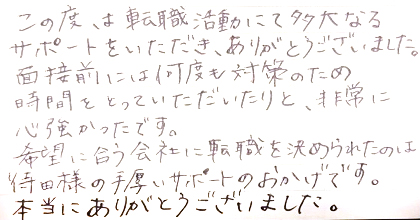 この度は転職活動にて多大なる
サポートをいただき、ありがとうございました。
面接前には何度も対策のため
時間をとっていただいたりと、非常に
心強かったです。
希望に合う会社に転職を決められたのは
待田様の手厚いサポートのおかげです。
本当にありがとうございました。